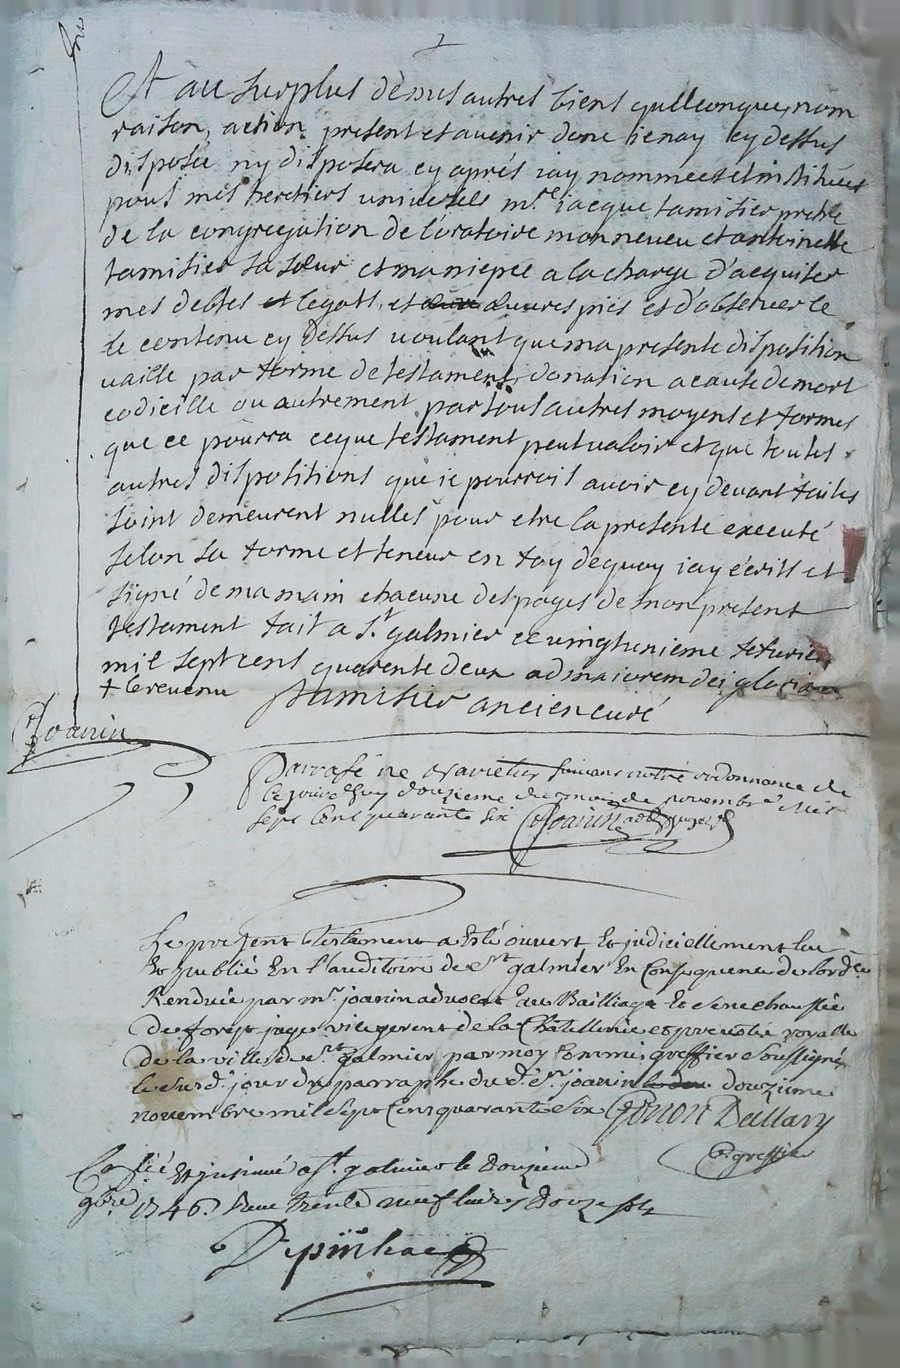 Et au surplus de mes autres biens quelleconques, nom
raison, action, present et avenir donc ie nay cy dessus
disposée ny disposera cy aprés iay nommee et institueés
pour mes heretiers universels mre iacque tamisier pretre
de la congregation de l'oratoire mon neveu et antoinette
tamisier sa sœur et ma niepce a la charge d'acquiter
mes debtes et legats, et œuvres pies et d'observer le
le contenu cy dessus voulant que ma presente disposition
vaille par forme de testament, donation a cause de mort
codicille ou autrement par tous autres moyens et formes
que ce pourra ceque testament peut valoir et que toutes
autres dispositions que ie pourrois avoir cy devant faites
soint demeurent nulles pour etre la presente executé
selon sa forme et teneur en foy dequoy iay écrits et
signé de ma main chacune des pages de mon present
testament fait a st galmier ce vingtunieme fefurier
mil sept cens quarente deux ad maiorem dei gloriam
+ le revenu tamisier ancien curé
Joanin
Parrafé ne varietur suivant notre ordonnance de
ce jourdhuy douzieme du mois de novembre mil
sept cent quarante six Joanin
Le present testament a esté ouvert et judiciellement lu
et publié en l'auditoire de st galmier en consequence de lordce
rendüe par mr joanin advocat au Bailliage et senechaussée
de forest juge vicegerent de la Chatellenie et prevosté royalle
de la ville de st galmier par moy commis greffier soussigné
le susd. jour du parraphe du d. sr joanin douzieme
novembre mil sept cens quarante six Ponon Dallary
Cgreffier
et insinué a st galmier le douzieme
9bre 1746. Reçu trente neuf livres douze sols
Depinhac